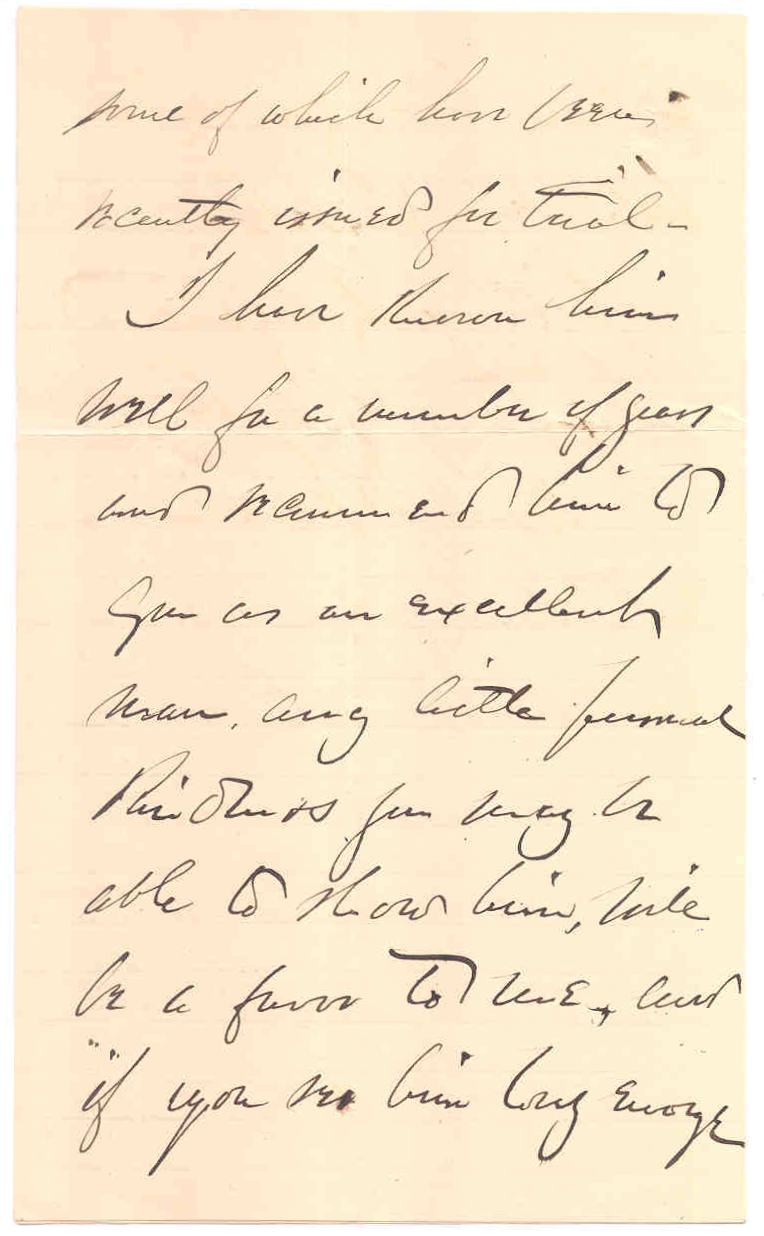 some of which have been
recently issued for trial -
I have known him
well for a number of years
and recommend him to
you as an excellent
man, any little personal
kindness you may be
able to show him, will
be a favor to me, and
if you see him long enough